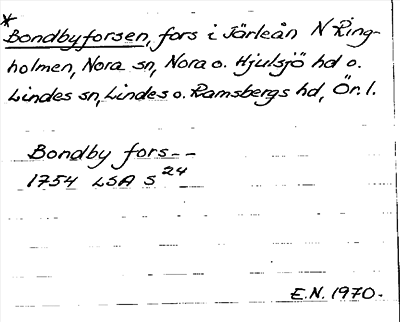 *
Bondbyforsen, fors i Järleån N Ring-
holmen, Nora sn, Nora o. Hjulsjö hd o.
Lindes sn, Lindes o. Ramsbergs hd, Ör. l.
Bondby fors--
1754 LSA S 24
E.N. 1970.